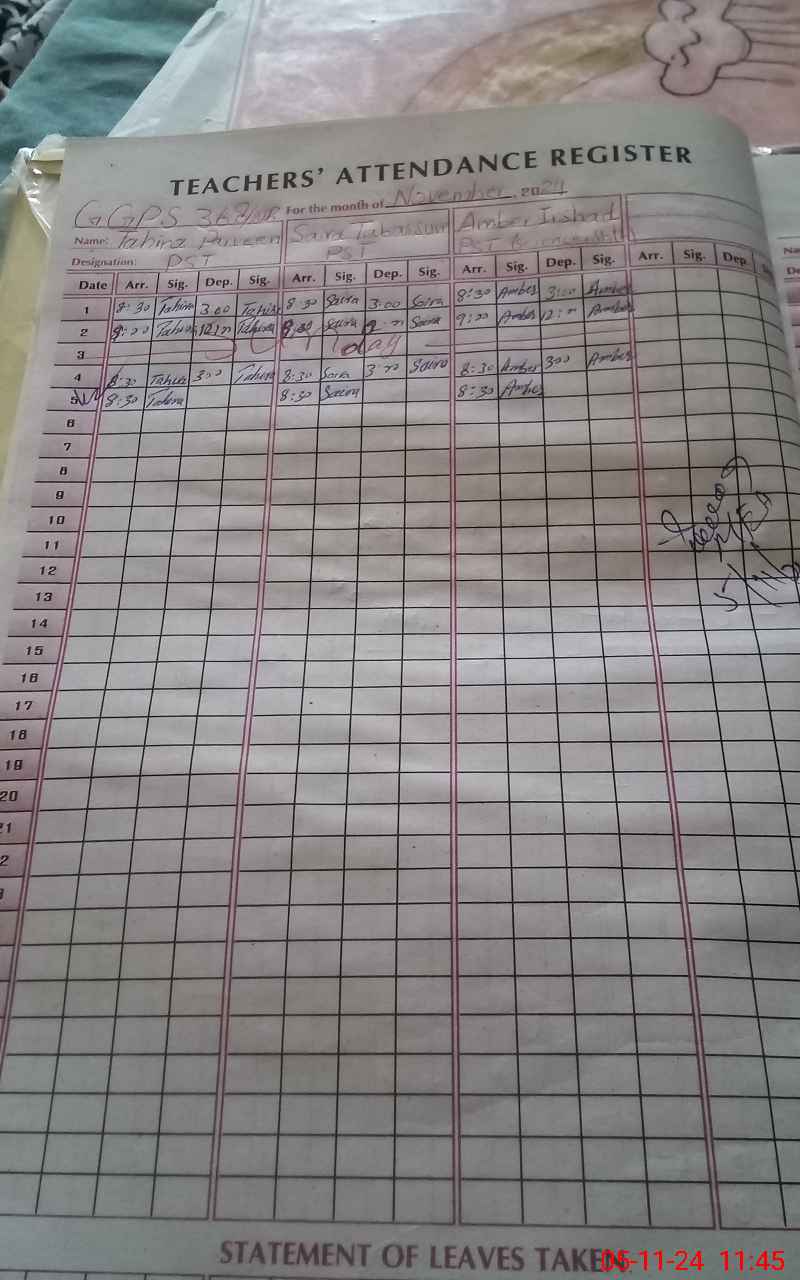 TEACHERS' ATTENDANCE REGISTER
GGPS 368/WB For the month of November, 2024
Name: Tahira Parveen Saira Tabassum Amber Irshad
Designation: PST PST PST
Date Arr. Sig. Dep. Sig. Arr. Sig. Dep. Sig. Arr. Sig. Dep. Sig. Arr. Sig. Dep.
1 8:30 Tahira 3:00 Tahira 8:30 Saira 3:00 Saira 8:30 Amber 3:00 Amber
2 9:00 Tahira 12:00 Tahira Saira Saira 9:00 Amber 12:00 Amber
3 Sunday
4 8:30 Tahira 3:00 Tahira 8:30 Saira 3:00 Saira 8:30 Amber 300 Amber
5 8:30 Tahira 8:30 Saira 8:30 Amber
6
7
8
9
10
11
12
13
14
15
16
17
18
19
20
STATEMENT OF LEAVES TAKE
05-11-24 11:45